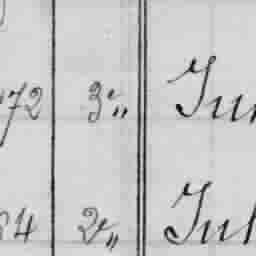 72 3 „ Jun
4 2 „ Jul